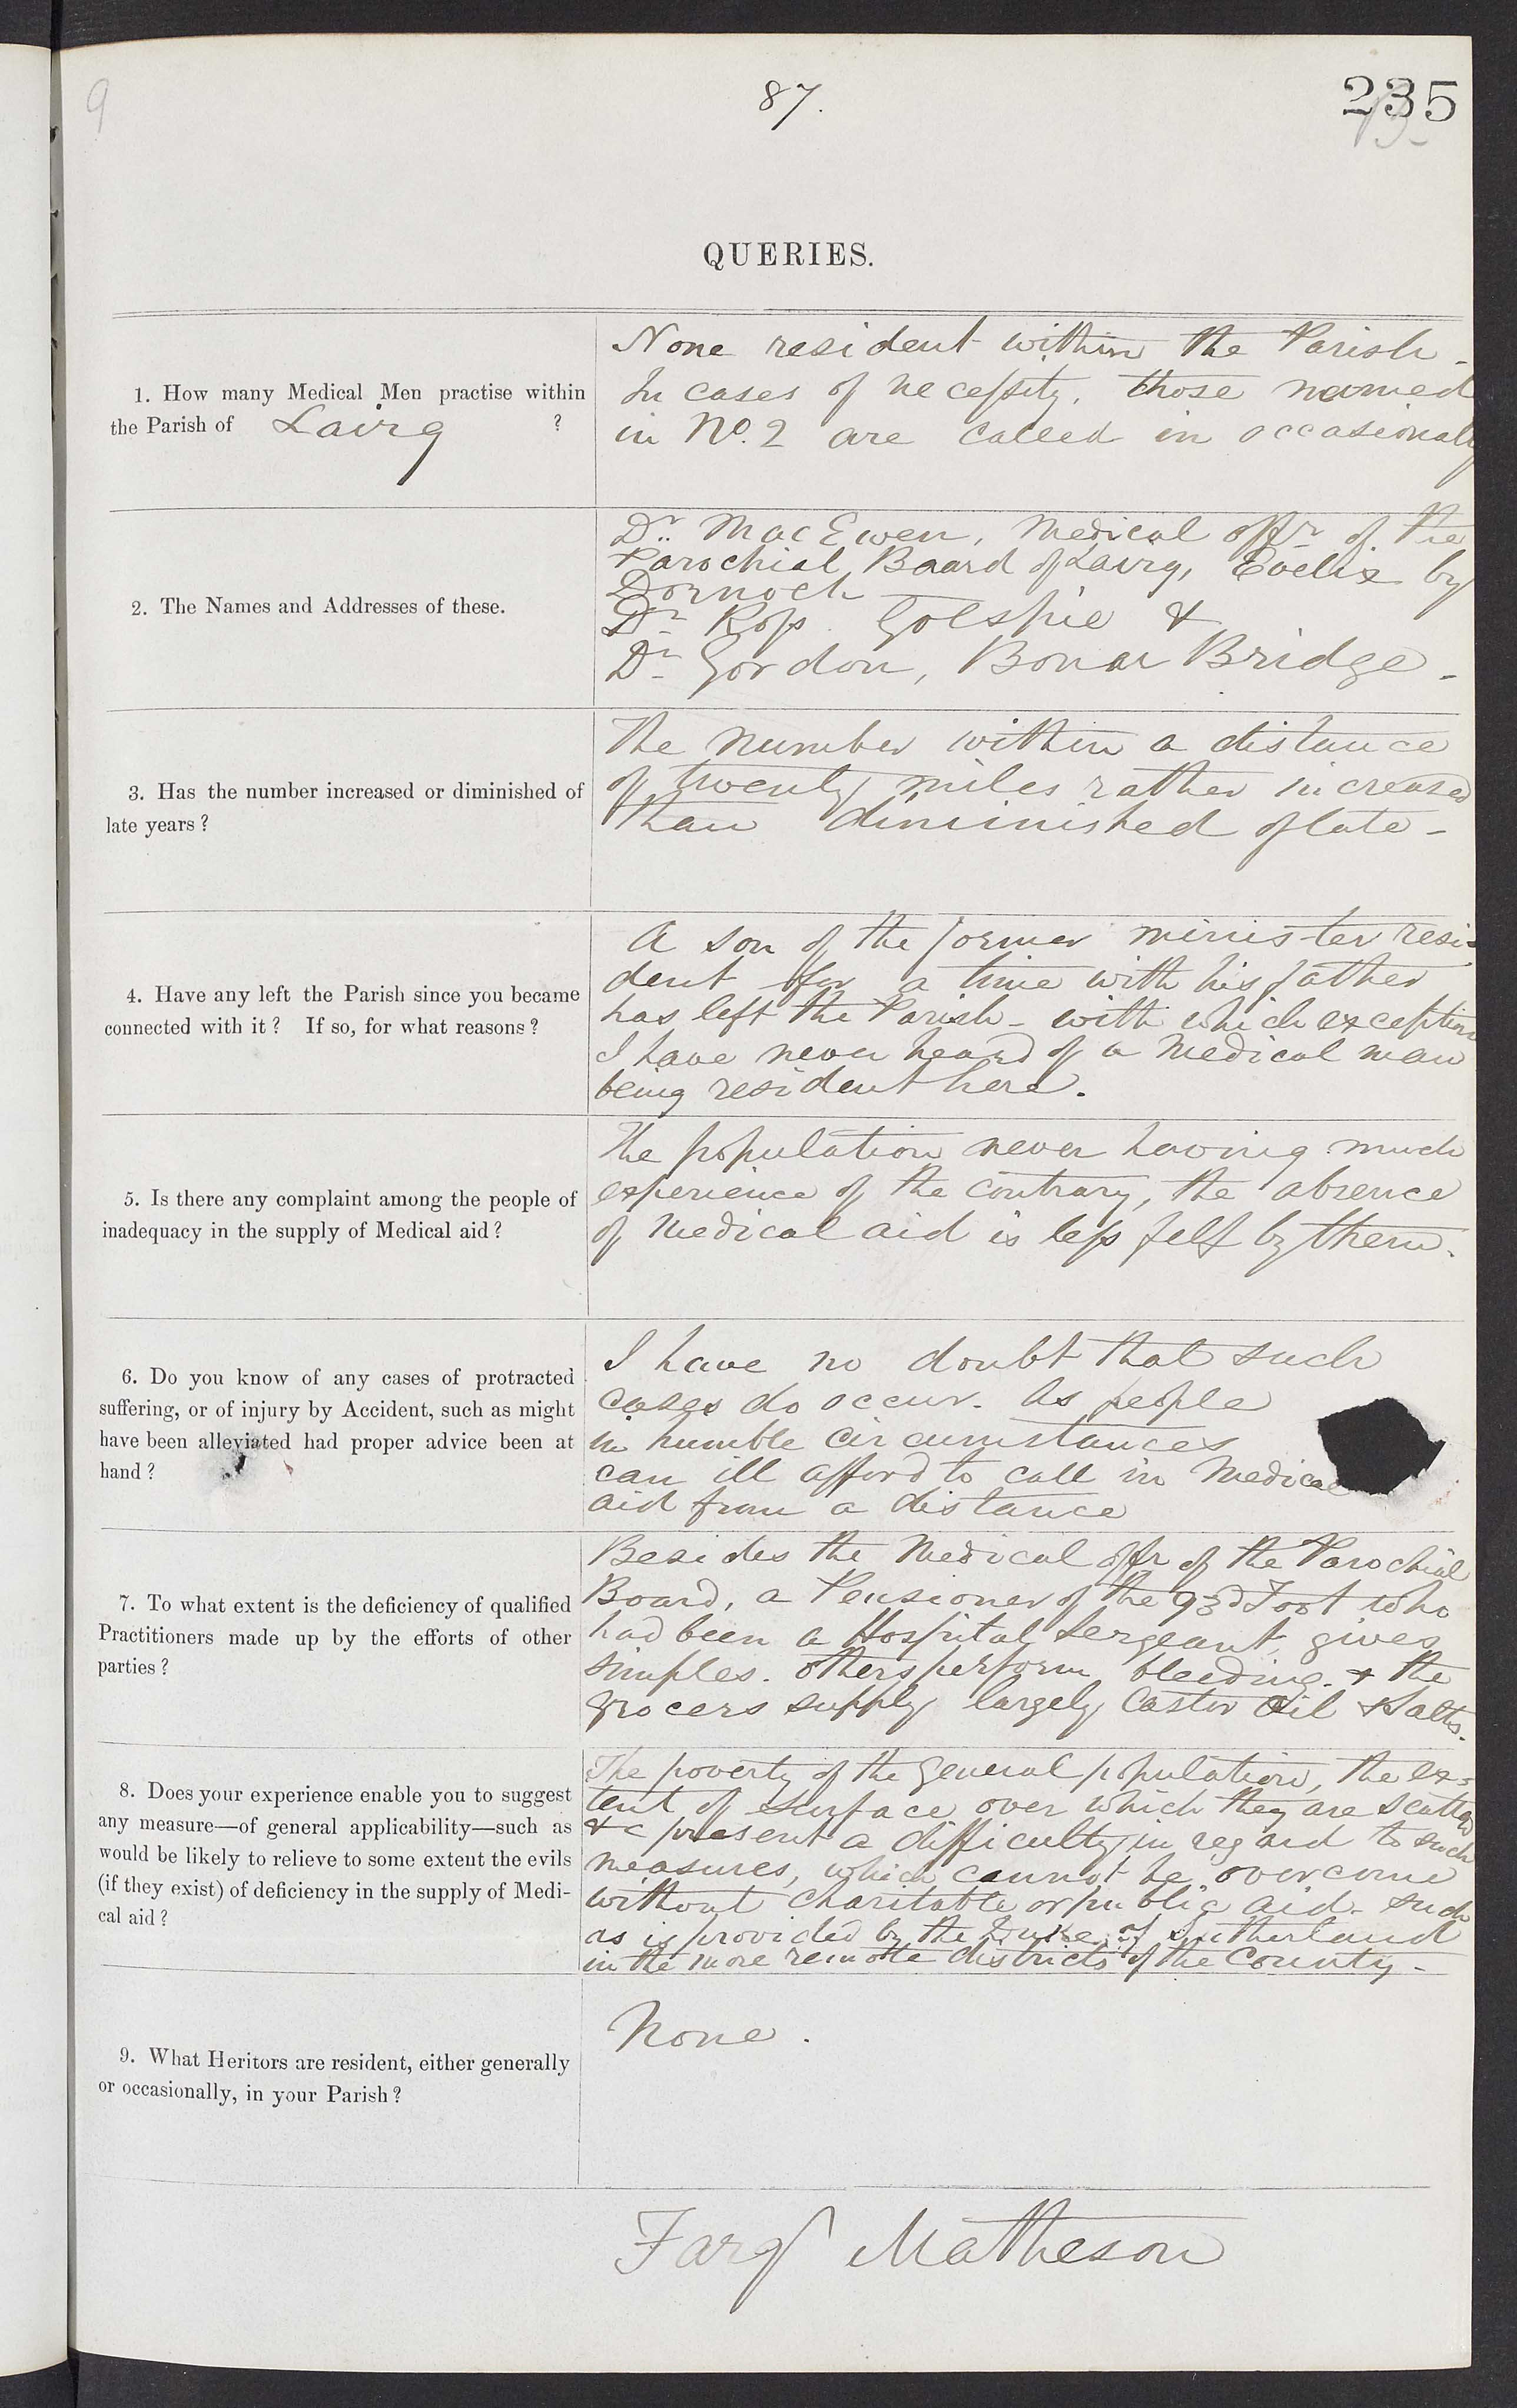 9
87.
235
QUERIES.
1. How many Medical Men practise within
the Parish of Lairg ?
None resident within the Parish -
In cases of necessity, those named
in No. 2 are called in occasionally
2. The Names and Addresses of these.
Dr. MacEwen, Medical offr of the
Parochial Board of Lairg, Evelix by
Dornoch
Dr Ross Golspie &
Dr Gordon, Bonar Bridge -
3. Has the number increased or diminished of
late years ?
The number within a distance
of twenty miles rather increased
than diminished of late -
4. Have any left the Parish since you became
connected with it ? If so, for what reasons ?
A son of the former minister resi-
dent for a time with his father
has left the Parish - with which exception
I have never heard of a Medical man
being resident here.
5. Is there any complaint among the people of
inadequacy in the supply of Medical aid ?
The population never having much
experience of the contrary, the absence
of Medical aid is less felt by them.
6. Do you know of any cases of protracted
suffering, or of injury by Accident, such as might
have been alleviated had proper advice been at
hand ?
I have no doubt that such
cases do occur. As people
in humble circumstances
can ill afford to call in Medical
aid from a distance
7. To what extent is the deficiency of qualified
Practitioners made up by the efforts of other
parties ?
Besides the Medical offr of the Parochial
Board, a Pensioner of the 93d Foot who
had been a Hospital Sergeant, gives
simples. Others perform bleeding. & the
grocers supply largely Castor Oil & Salts.
8. Does your experience enable you to suggest
any measure—of general applicability—such as
would be likely to relieve to some extent the evils
(if they exist) of deficiency in the supply of Medi-
cal aid ?
The poverty of the general population, the ex=
tent of surface over which they are scattered
&c present a difficulty in regard to such
measures, which cannot be overcome
without charitable or public aid - such
as is provided by the Duke of Sutherland
in the more remote districts of the County -
9. What Heritors are resident, either generally
or occasionally, in your Parish ?
None.
Farqr Matheson